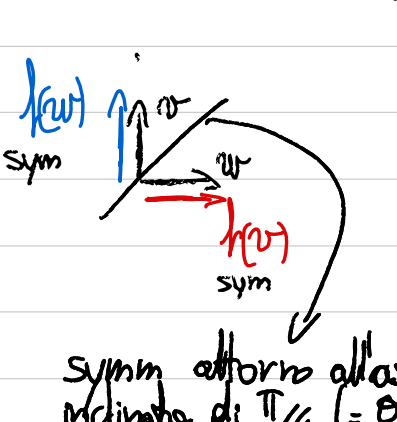 f(w)
v
sym
w
f(v)
sym
symm attorno all'as
inclinata di π/4 (= θ